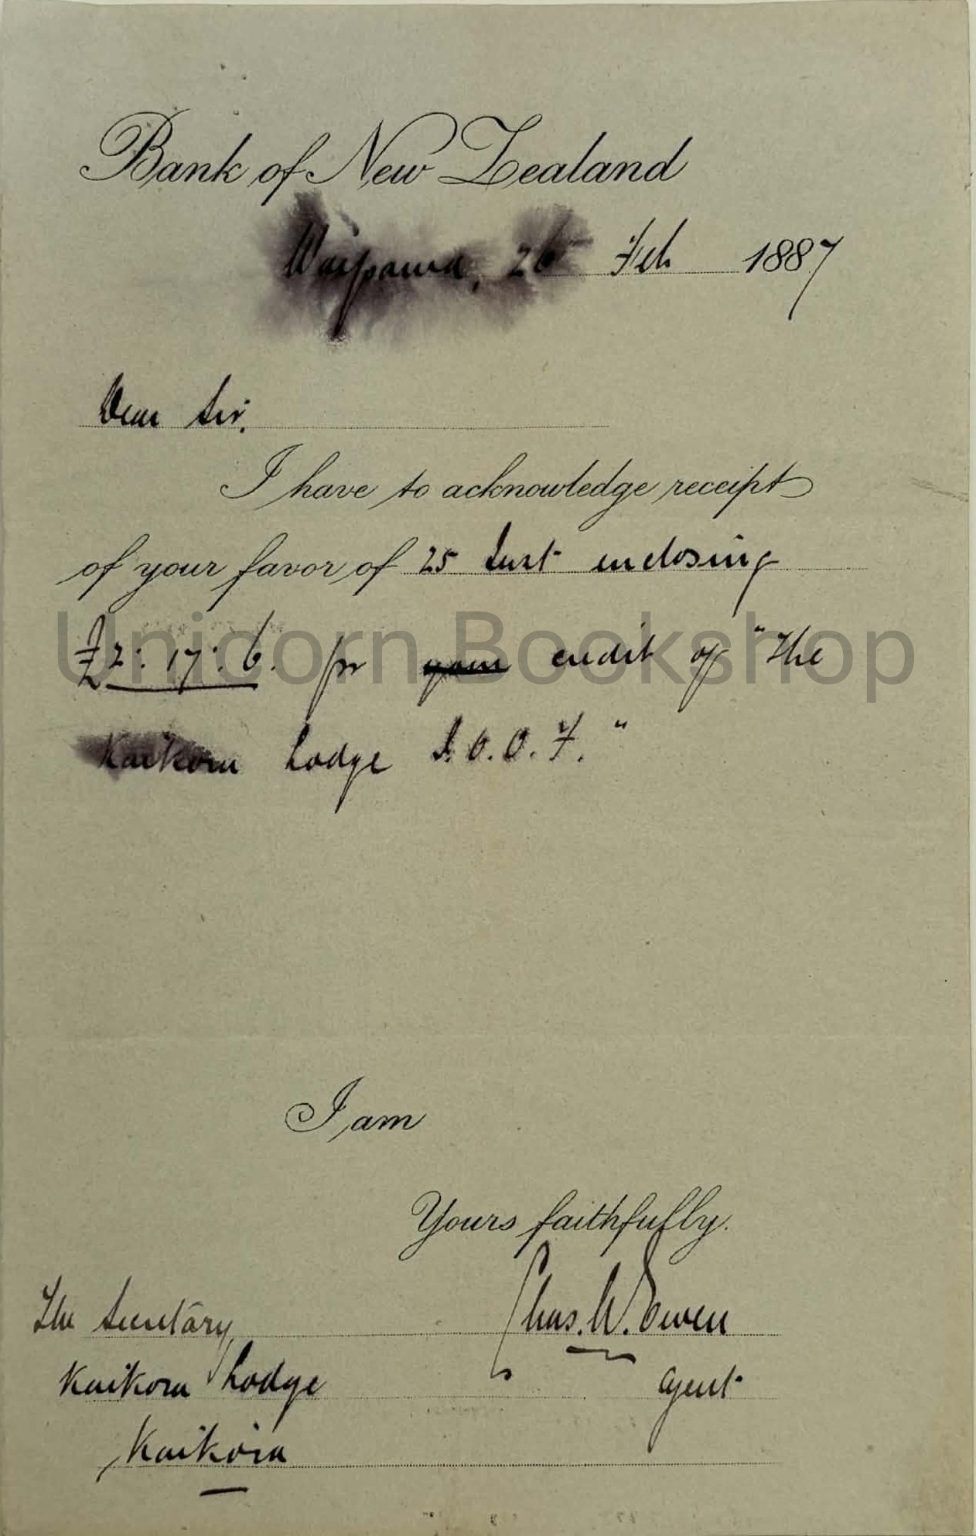 Bank of New Zealand
Waipawa, 26 Feb 1887
Dear Sir,
I have to acknowledge receipt
of your favor of 25 Inst enclosing
£2:17:6. for your credit of "The
Kaikora Lodge I.O.O.F."
Unicorn Bookshop
I am
Yours faithfully.
Chas. W. Owen
Agent
The Secretary
Kaikora Lodge
Kaikora